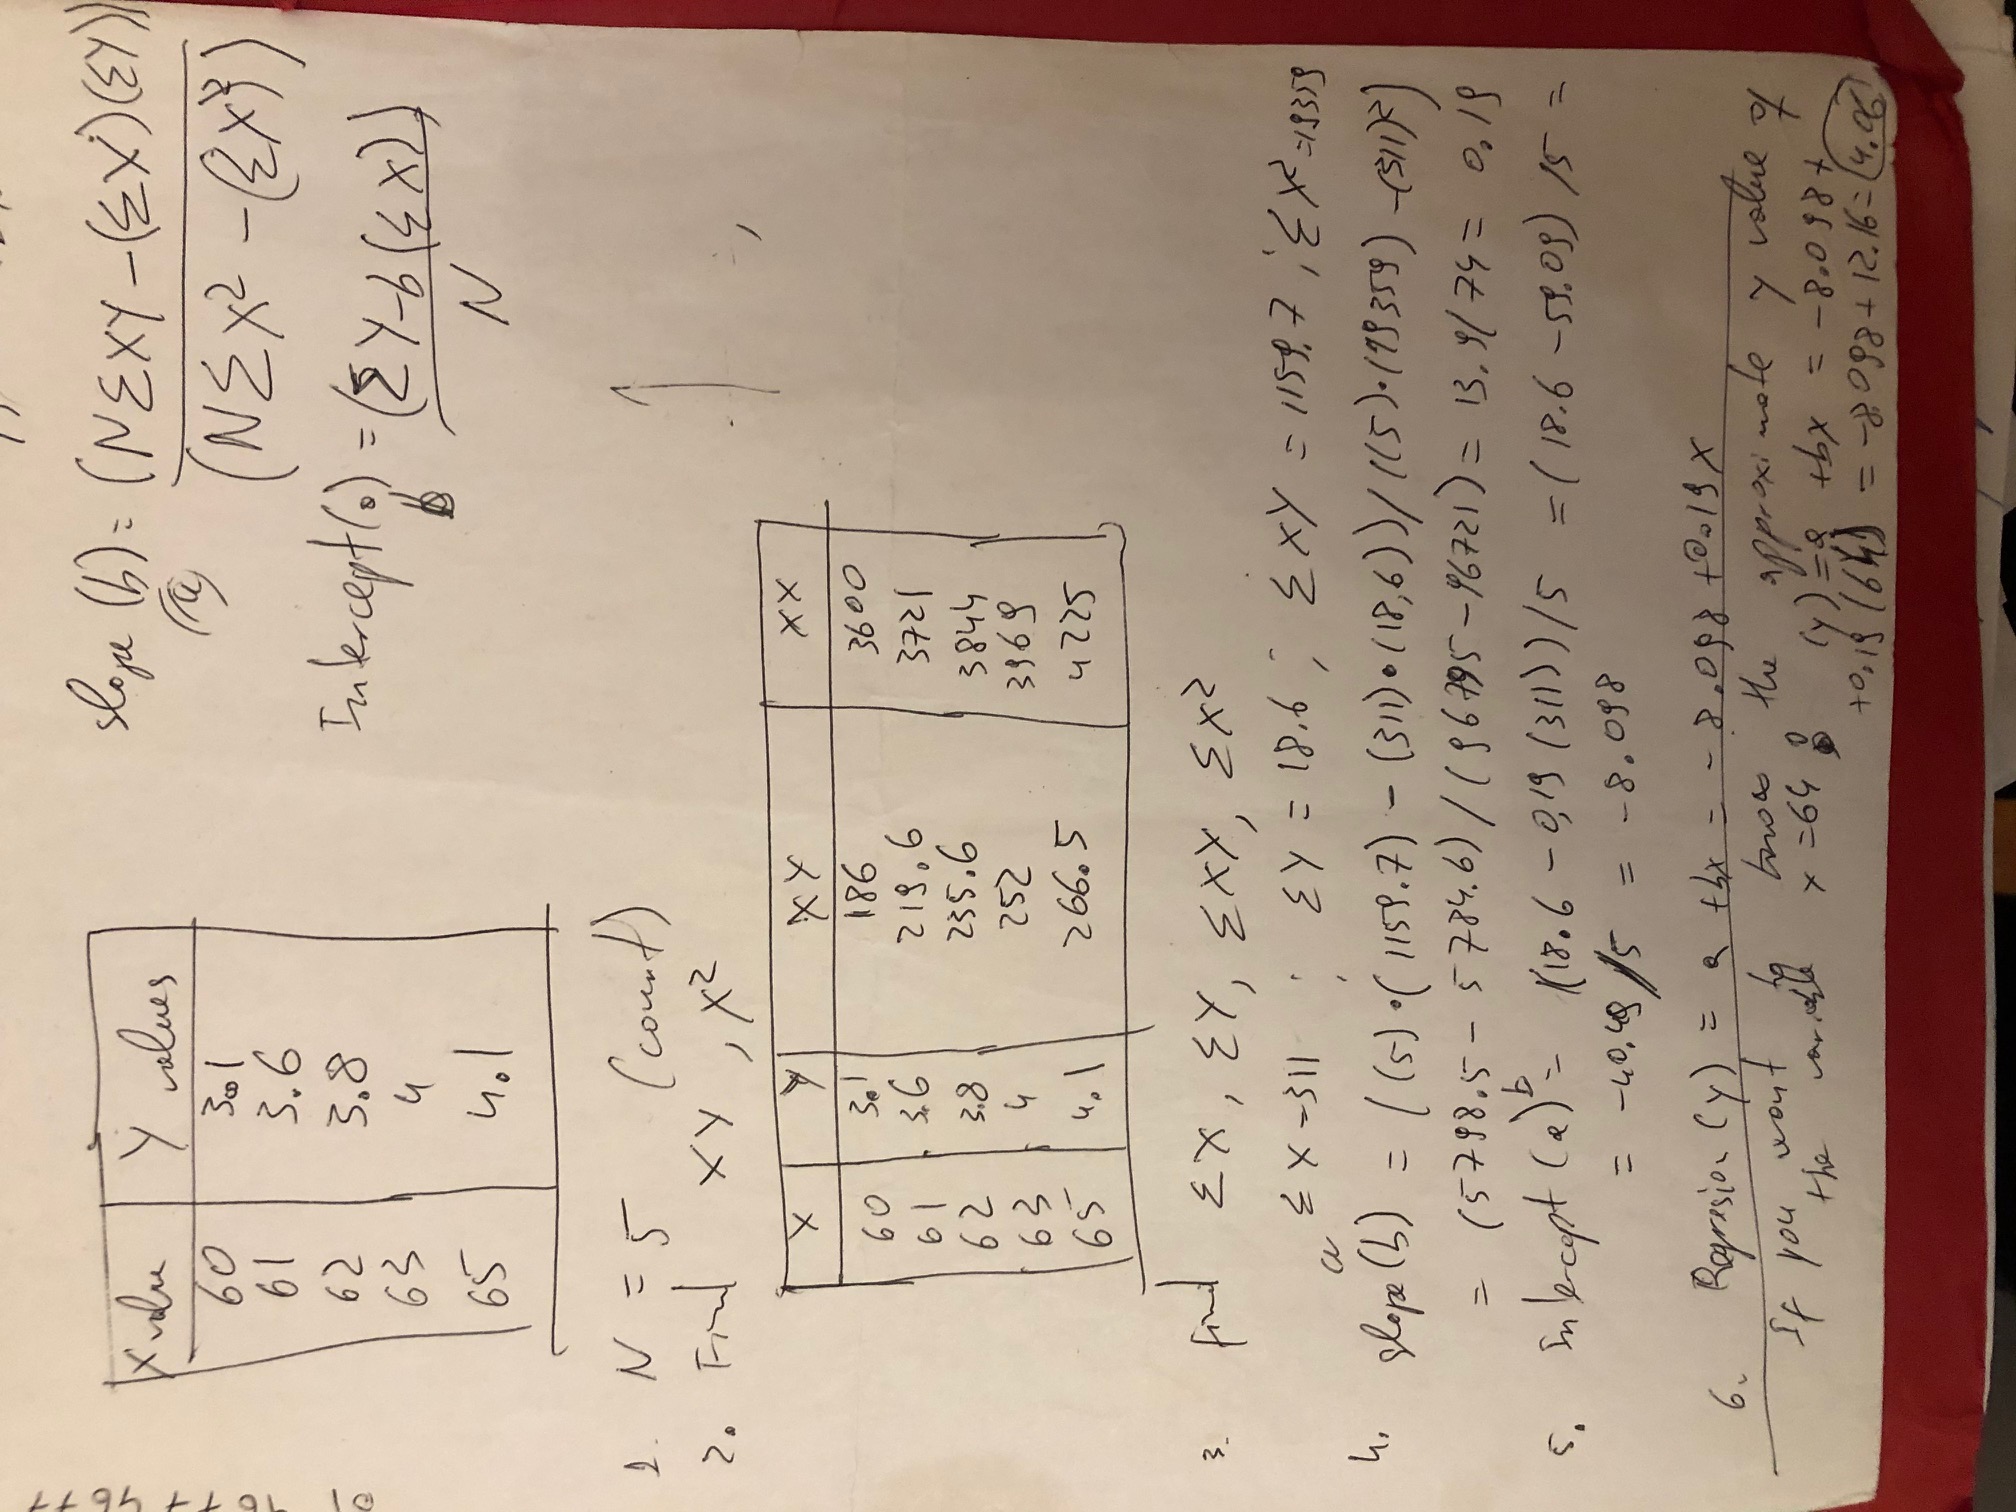 X value | Y values
60 | 3.1
61 | 3.6
62 | 3.8
63 | 4
65 | 4.1
slope (b) = (NΣXY - (ΣX)(ΣY))
(a)
(NΣX² - (ΣX)²)
Intercept ( ) = (ΣY-b(ΣX))
b
N
1. N = 5 (count)
2. Find XY, X²
X | Y | XY | XX
60 | 3.1 | 186 | 3600
61 | 3.6 | 219.6 | 3721
62 | 3.8 | 235.6 | 3844
63 | 4 | 252 | 3969
65 | 4.1 | 266.5 | 4225
3. find ΣX, ΣY, ΣXY, ΣX²
ΣX = 311 ; ΣY = 18.6 ; ΣXY = 1159.7 ; ΣX² = 19359
a
4. slope (b) = ((5)·(1159.7) - (311)·(18,6))/((5)·(19359) - (311)²)
= (5798.5 - 5784.6)/(96795 - 96721) = 13.9/74 = 0.19
5. Intercept (a) b = ((18.6 - 0,19 (311))/5 = (18.6 - 59.09)/5 =
= -40.49/5 = -8.098
6. Regresion (y) = a + bx = -8.098 + 0.19x
If you want to know the approximate y value of
the variable x = 64 : (y) = a + bx = -8.098 +
+0.19 (64) = -8.098 + 12.16 = 4.06